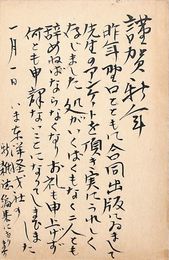 謹賀新年
昨年野口とともに合同出版にゐまして
先生のアンケートを頂き実にうれしく
存じました 処がいくばくもなく二人とも
辞めねばならなくなりお礼も申上げず
何とも申訳ないことになりしました
一月一日
いま東洋経済社の